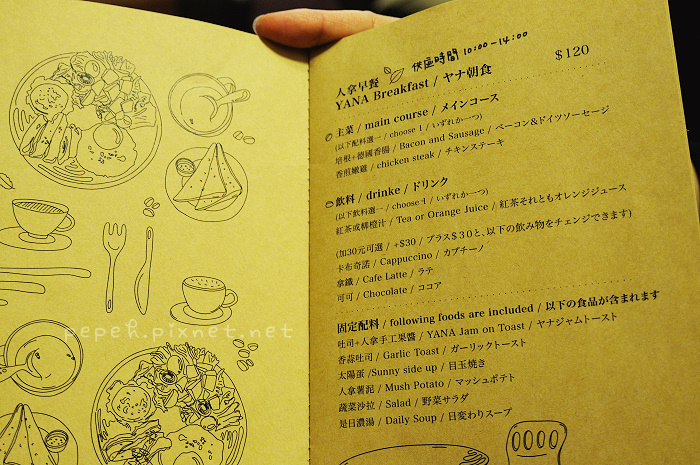 供應時間 10:00-14:00
人拿早餐
YANA Breakfast / ヤナ朝食
$120
主菜 / main course / メインコース
(以下配料選一 / choose 1 / いずれか一つ)
培根+德國香腸 / Bacon and Sausage / ベーコン&ドイツソーセージ
香煎嫩雞 / chicken steak / チキンステーキ
飲料 / drinke / ドリンク
(以下飲料選一 / choose 1 / いずれか一つ)
紅茶或柳橙汁 / Tea or Orange Juice / 紅茶それともオレンジジュース
(加30元可選 / +$30 / プラス$30と、以下の飲み物をチェンジできます)
卡布奇諾 / Cappuccino / カプチーノ
拿鐵 / Cafe Latte / ラテ
可可 / Chocolate / ココア
固定配料 / following foods are included / 以下の食品が含まれます
吐司+人拿手工果醬 / YANA Jam on Toast / ヤナジャムトースト
香蒜吐司 / Garlic Toast / ガーリックトースト
太陽蛋 /Sunny side up / 目玉焼き
人拿薯泥 / Mush Potato / マッシュポテト
蔬菜沙拉 / Salad / 野菜サラダ
是日濃湯 / Daily Soup / 日変わりスープ
pepeh.pixnet.net